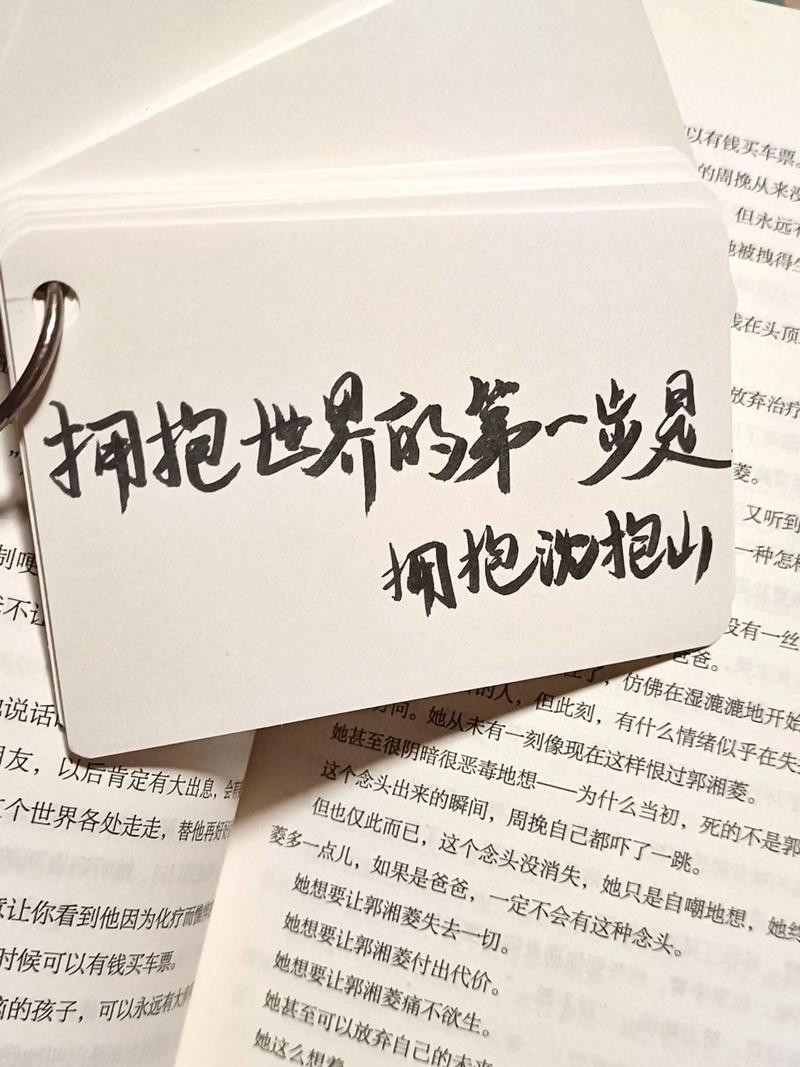 拥抱世界的第一步是
拥抱沈抱山
以有钱买车票。
的周挽从来没
但永远有
她被拽得生
线在头顶
放弃治疗
菱。
又听到
一种怎样
没有一丝
爸爸。
的人，但此刻，仿佛在湿漉漉地开始
问。她从未有一刻像现在这样恨过郭湘菱。
有什么情绪似乎在失去
她甚至很阴暗很恶毒地想——为什么当初，死的不是郭
这个念头出来的瞬间，周挽自己都吓了一跳。
但也仅此而已，这个念头没消失，她只是自嘲地想，她终
菱多一点儿，如果是爸爸，一定不会有这种念头。
她想要让郭湘菱失去一切。
她想要让郭湘菱付出代价。
她想要让郭湘菱痛不欲生。
她甚至可以放弃自己的未来
她这么想着
制哽
不让
他说话
朋友，以后肯定有大出息，会
个世界各处走走，替他再好好
意让你看到他因为化疗而憔
时候可以有钱买车票。
的孩子，可以永远有大